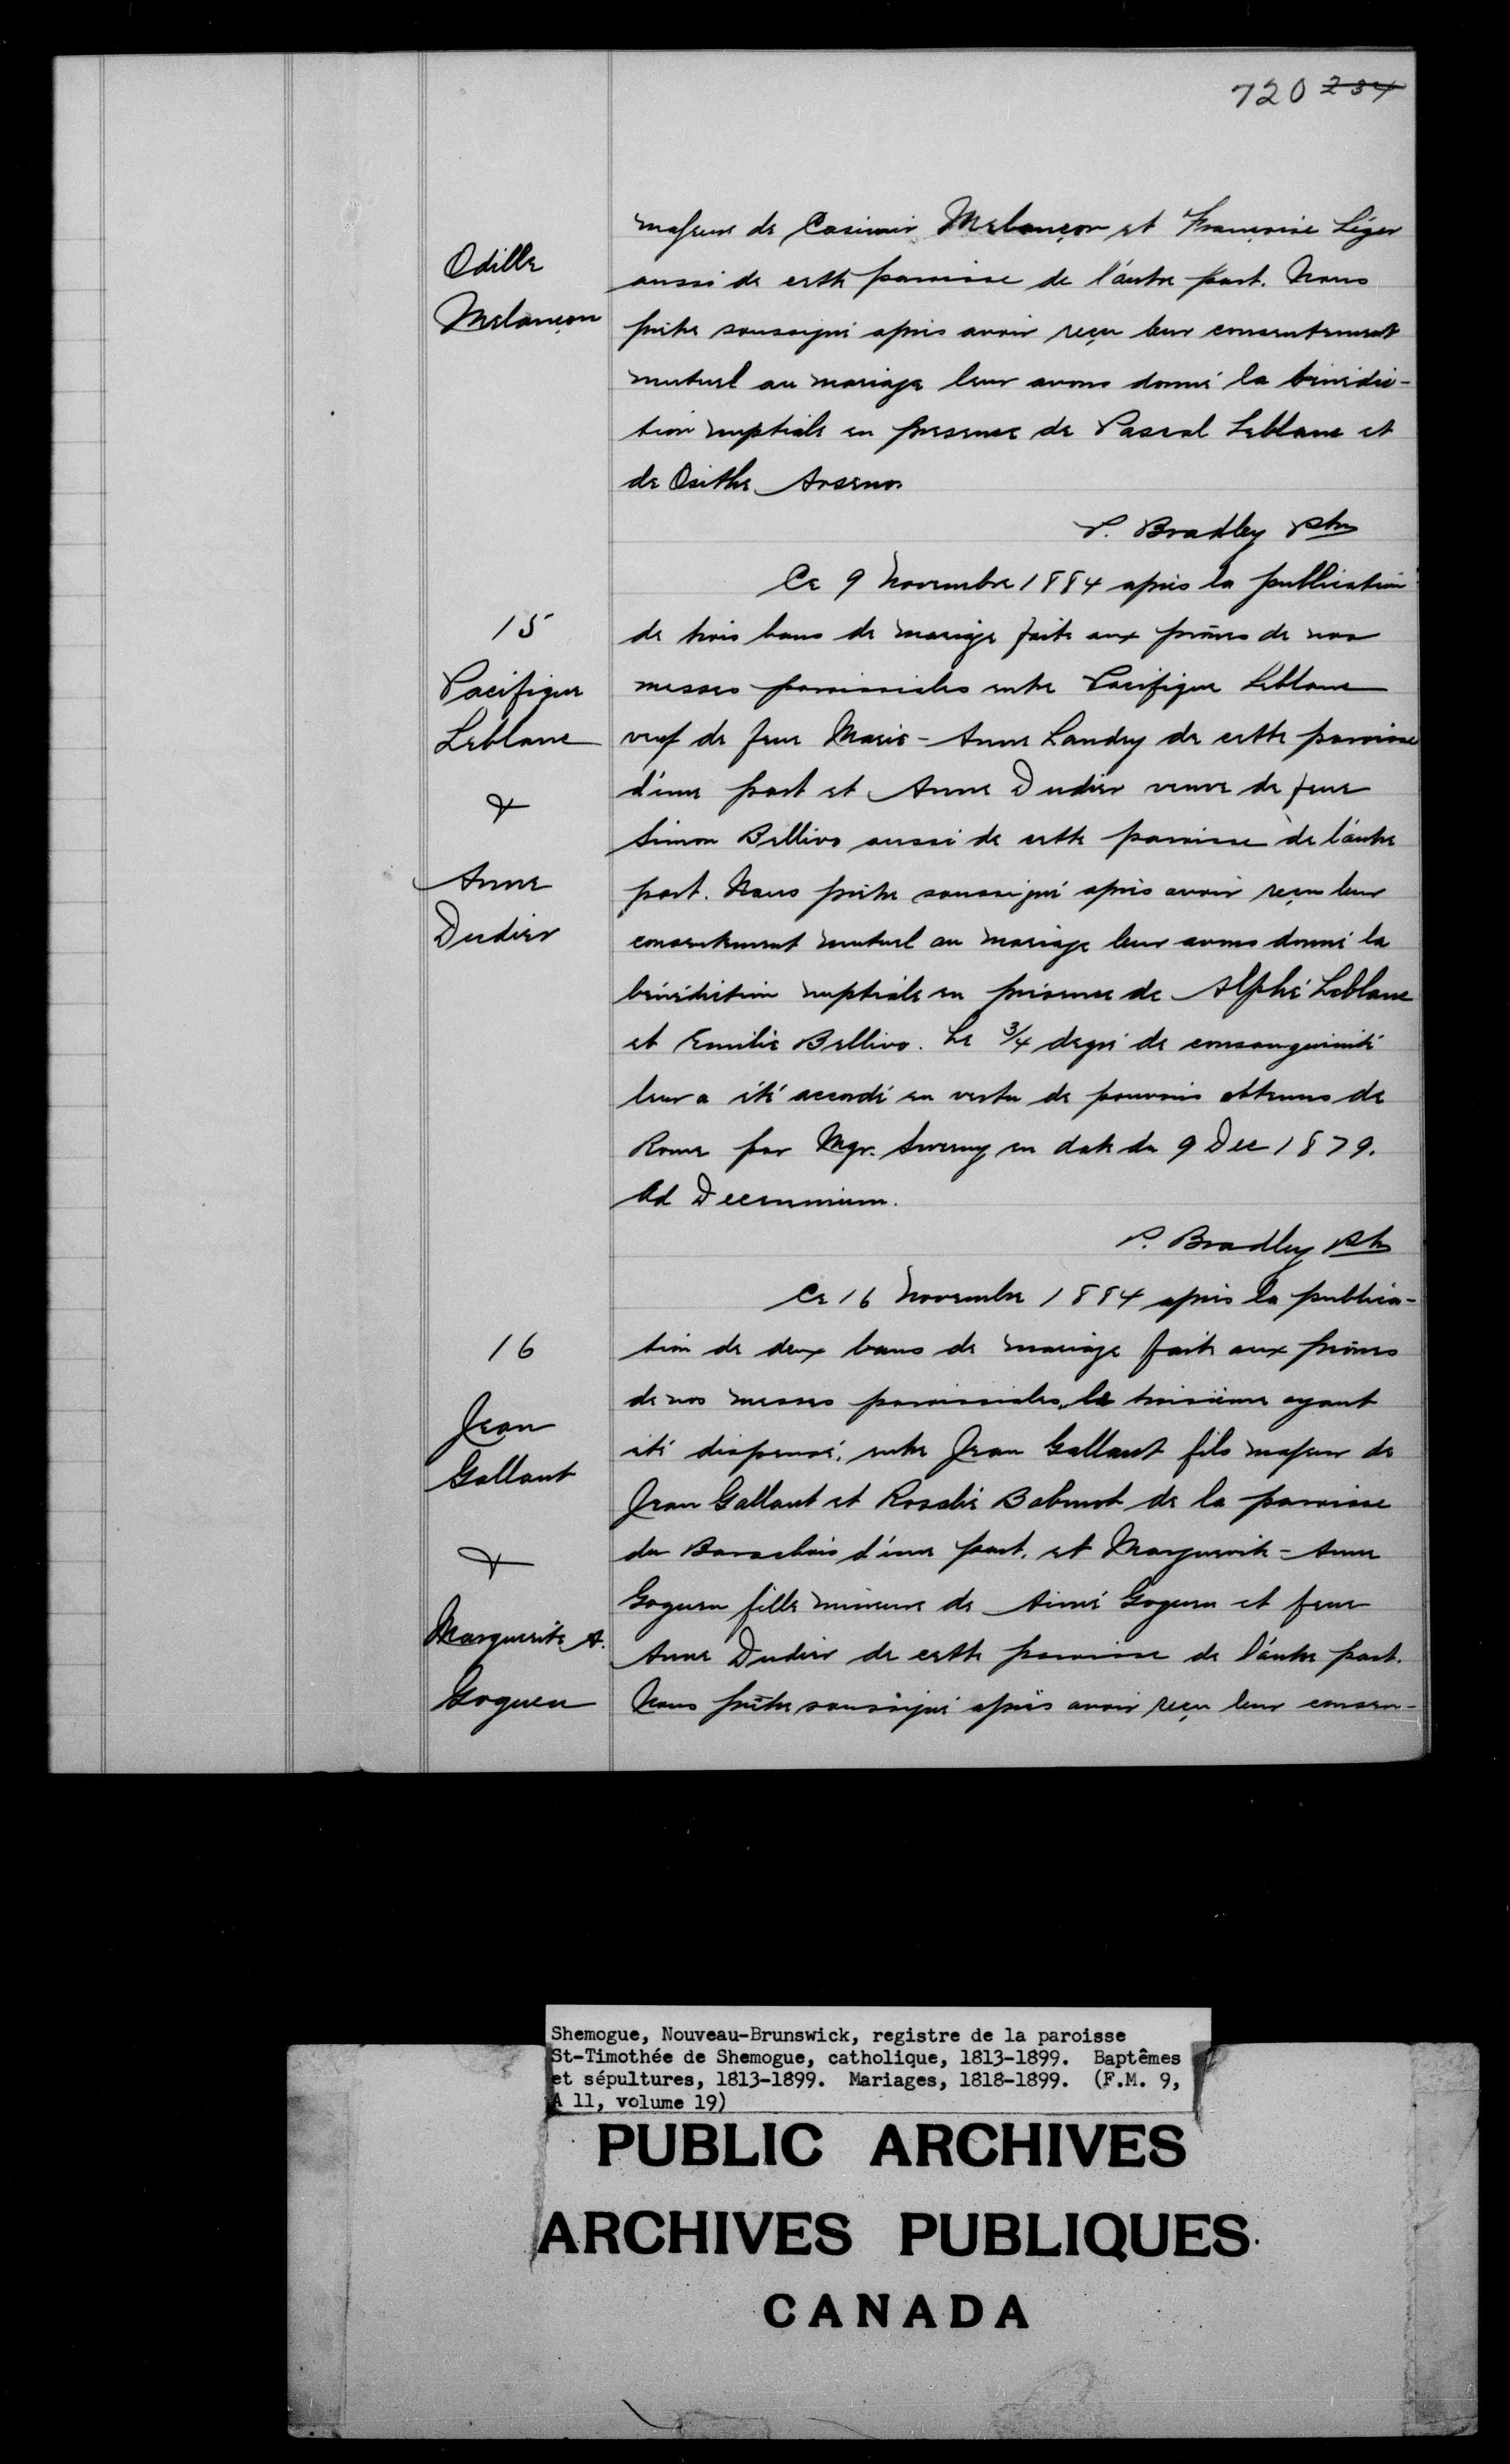 720 234
majeure de Casimir Melançon et Françoise Léger
Odille
aussi de cette paroisse de l'autre part. Nous
Melançon
prêtre soussigné après avoir reçu leur consentement
mutuel au mariage leur avons donné la bénédic-
tion nuptiale en presence de Pascal Leblanc et
de Osithe Arseno.
P. Bradley Ptre
Ce 9 Novembre 1884 après la publication
15
de trois bans de mariage faite aux prônes de nos
Pacifique
messes paroissiales entre Pacifique Leblanc
Leblanc
veuf de feue Marie-Anne Landry de cette paroisse
&
d'une part et Anne Dudier veuve de feue
Simon Bellivo aussi de cette paroisse de l'autre
Anne
part. Nous prêtre soussigné après avoir reçu leur
Dudier
consentement mutuel au mariage leur avons donné la
bénédiction nuptiale en présence de Alphé Leblanc
et Emilie Bellivo. Le 3/4 degré de consanguinité
leur a été accordé en vertu de pouvoirs obtenus de
Rome par Mgr. Sweeny en date du 9 Dec 1879.
Ad Decennium.
P. Bradley Ptre
Ce 16 Novembre 1884 après la publica-
16
tion de deux bans de mariage faite aux prônes
de nos messes paroissiales, le troisième ayant
Jean
été dispensé, entre Jean Gallant fils majeur de
Gallant
Jean Gallant et Rosalie Babinot de la paroisse
&
du Barachois d'une part, et Marguerite-Anne
Goguen fille mineure de Aimé Goguen et feue
Marguerite A.
Anne Dudier de cette paroisse de l'autre part.
Goguen
Nous prêtre soussigné après avoir reçu leur consen-
Shemogue, Nouveau-Brunswick, registre de la paroisse
St-Timothée de Shemogue, catholique, 1813-1899. Baptêmes
et sépultures, 1813-1899. Mariages, 1818-1899. (F.M. 9,
A 11, volume 19)
PUBLIC ARCHIVES
ARCHIVES PUBLIQUES
CANADA